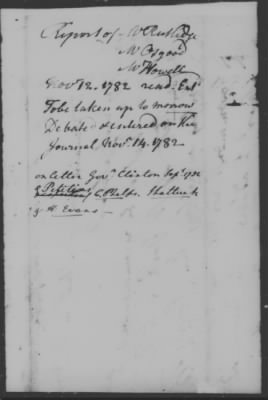 Report of Mr Rutledge
Mr Osgood
Mr Howell
Nov. 12. 1782 read. Entd
To be taken up to morrow
Debated & entered on the
Journal Novr. 14. 1782
on letter Govr. Clinton Sept. 1782
& Petitions of C. Phelps. Shattuck
& H. Evans —